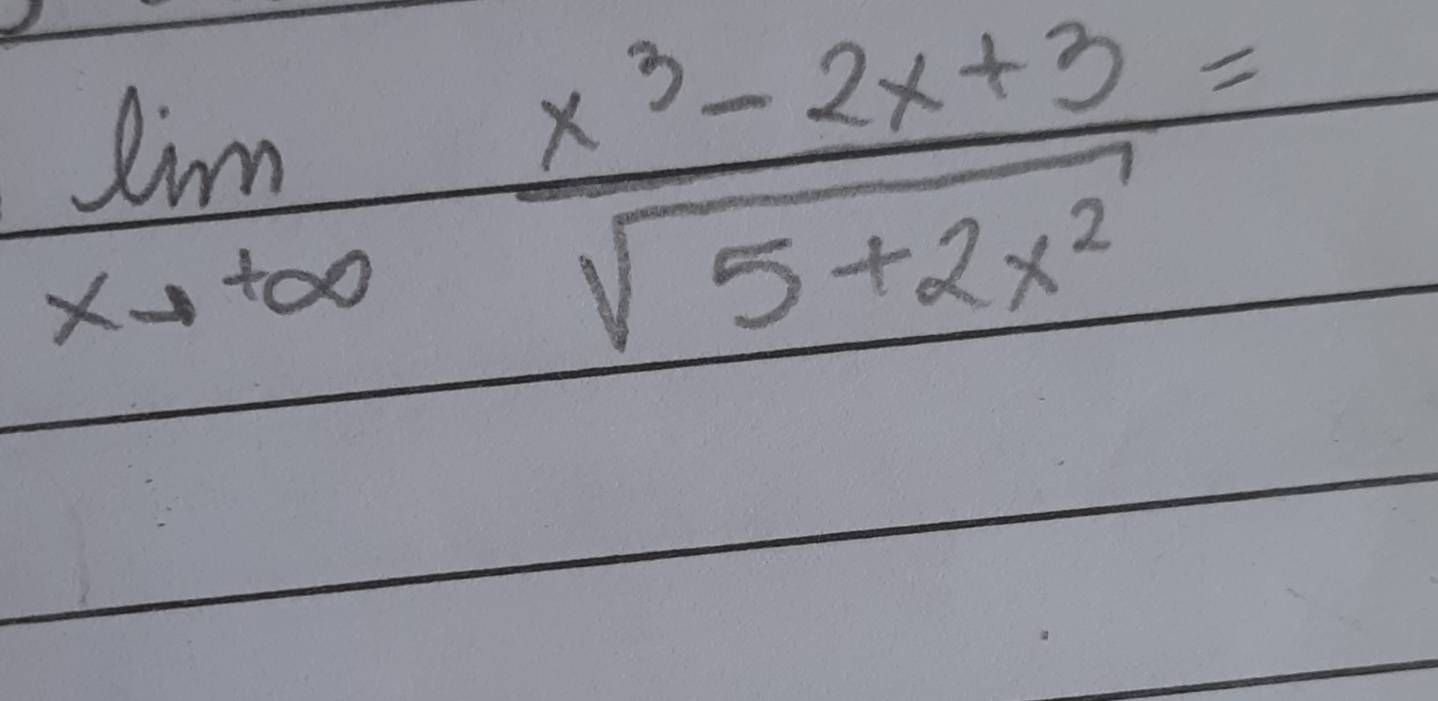 lim x³ - 2x + 3 =
x → +∞ √5 + 2x²